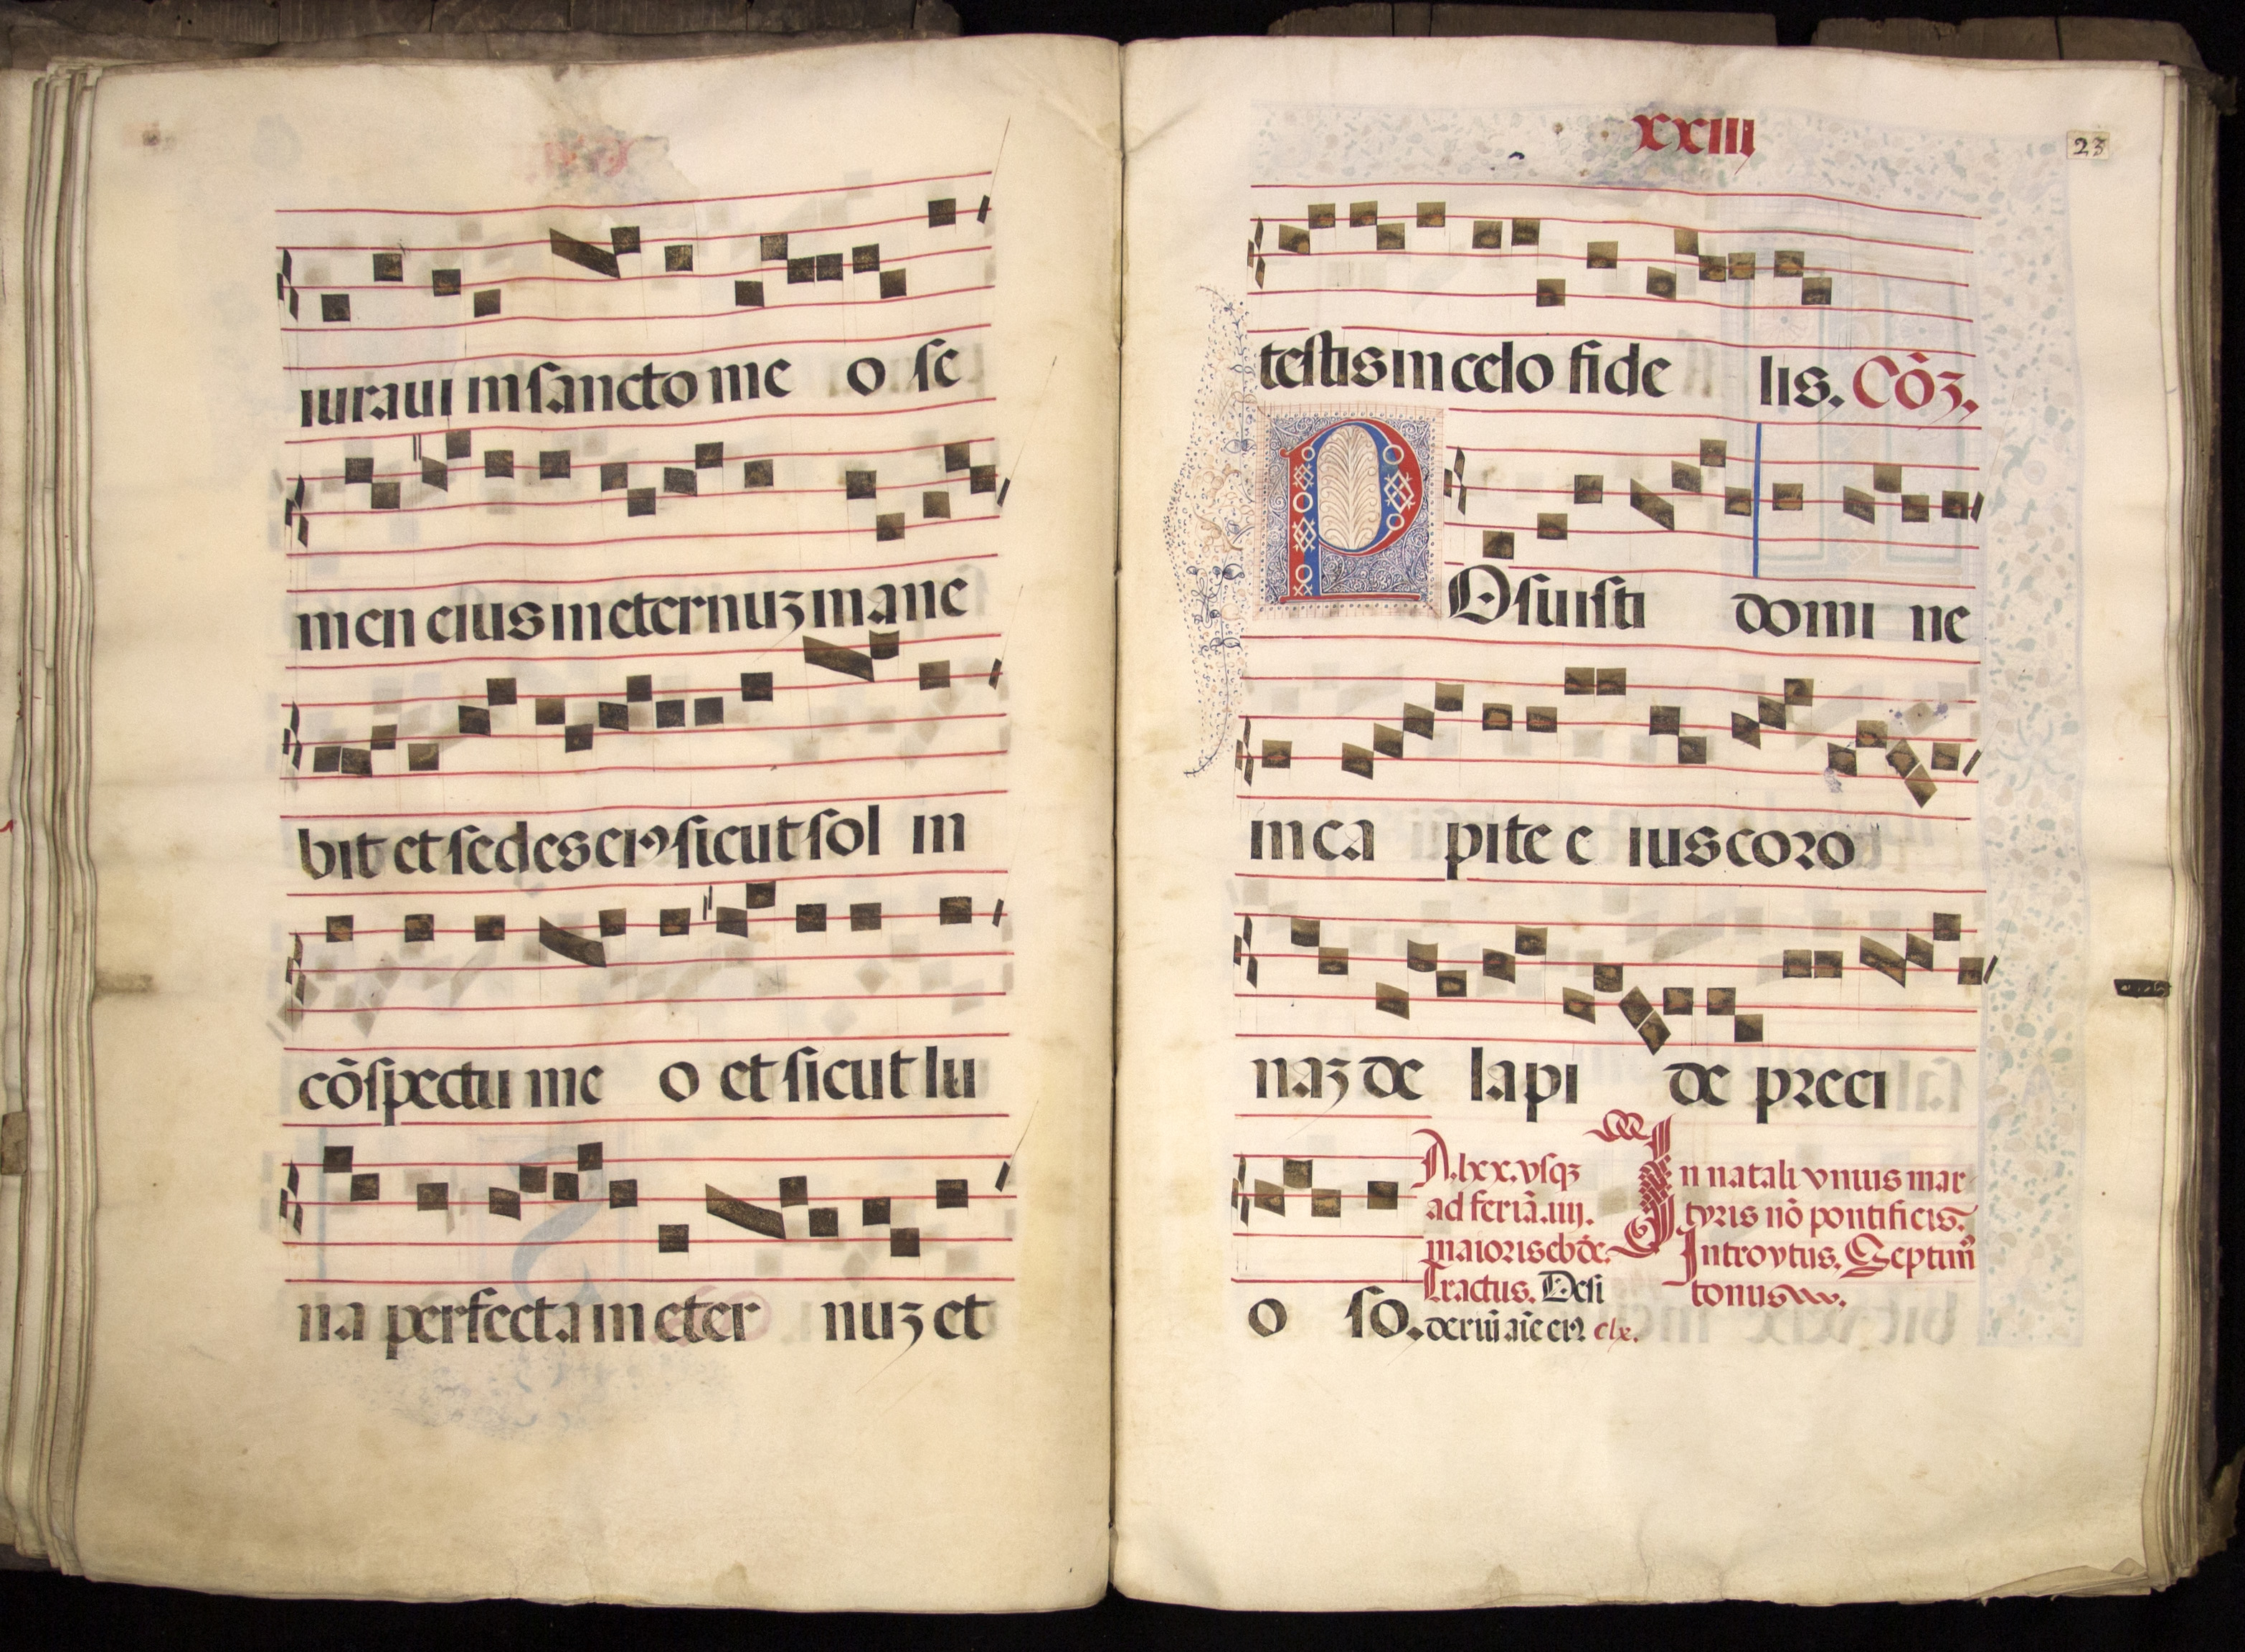 iuraui in sancto me o se
men eius in eternuz mane
bit et sedes eiꝰ sicut sol in
cōspectu me o et sicut lu
na perfecta in eter nuz et
xxiii
23
testis in celo fide lis. Cōz.
POsuisti domi ne
in ca pite e ius coro
naz de lapi de preci
o so.
A.lxx. vsqz
ad feriā.iiij.
maioris ebde.
Tractus. Desi
deriū aīe eiꝰ clx.
In natali vnius mar
tyris nō pontificis.
Introytus. Septimꝰ
tonus